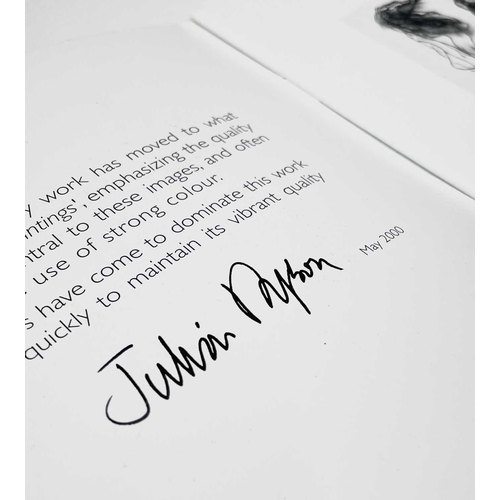 y work has moved to what
intings', emphasizing the quality
ntral to these images, and often
use of strong colour.
s have come to dominate this work
quickly to maintain its vibrant quality
May 2000
Julian